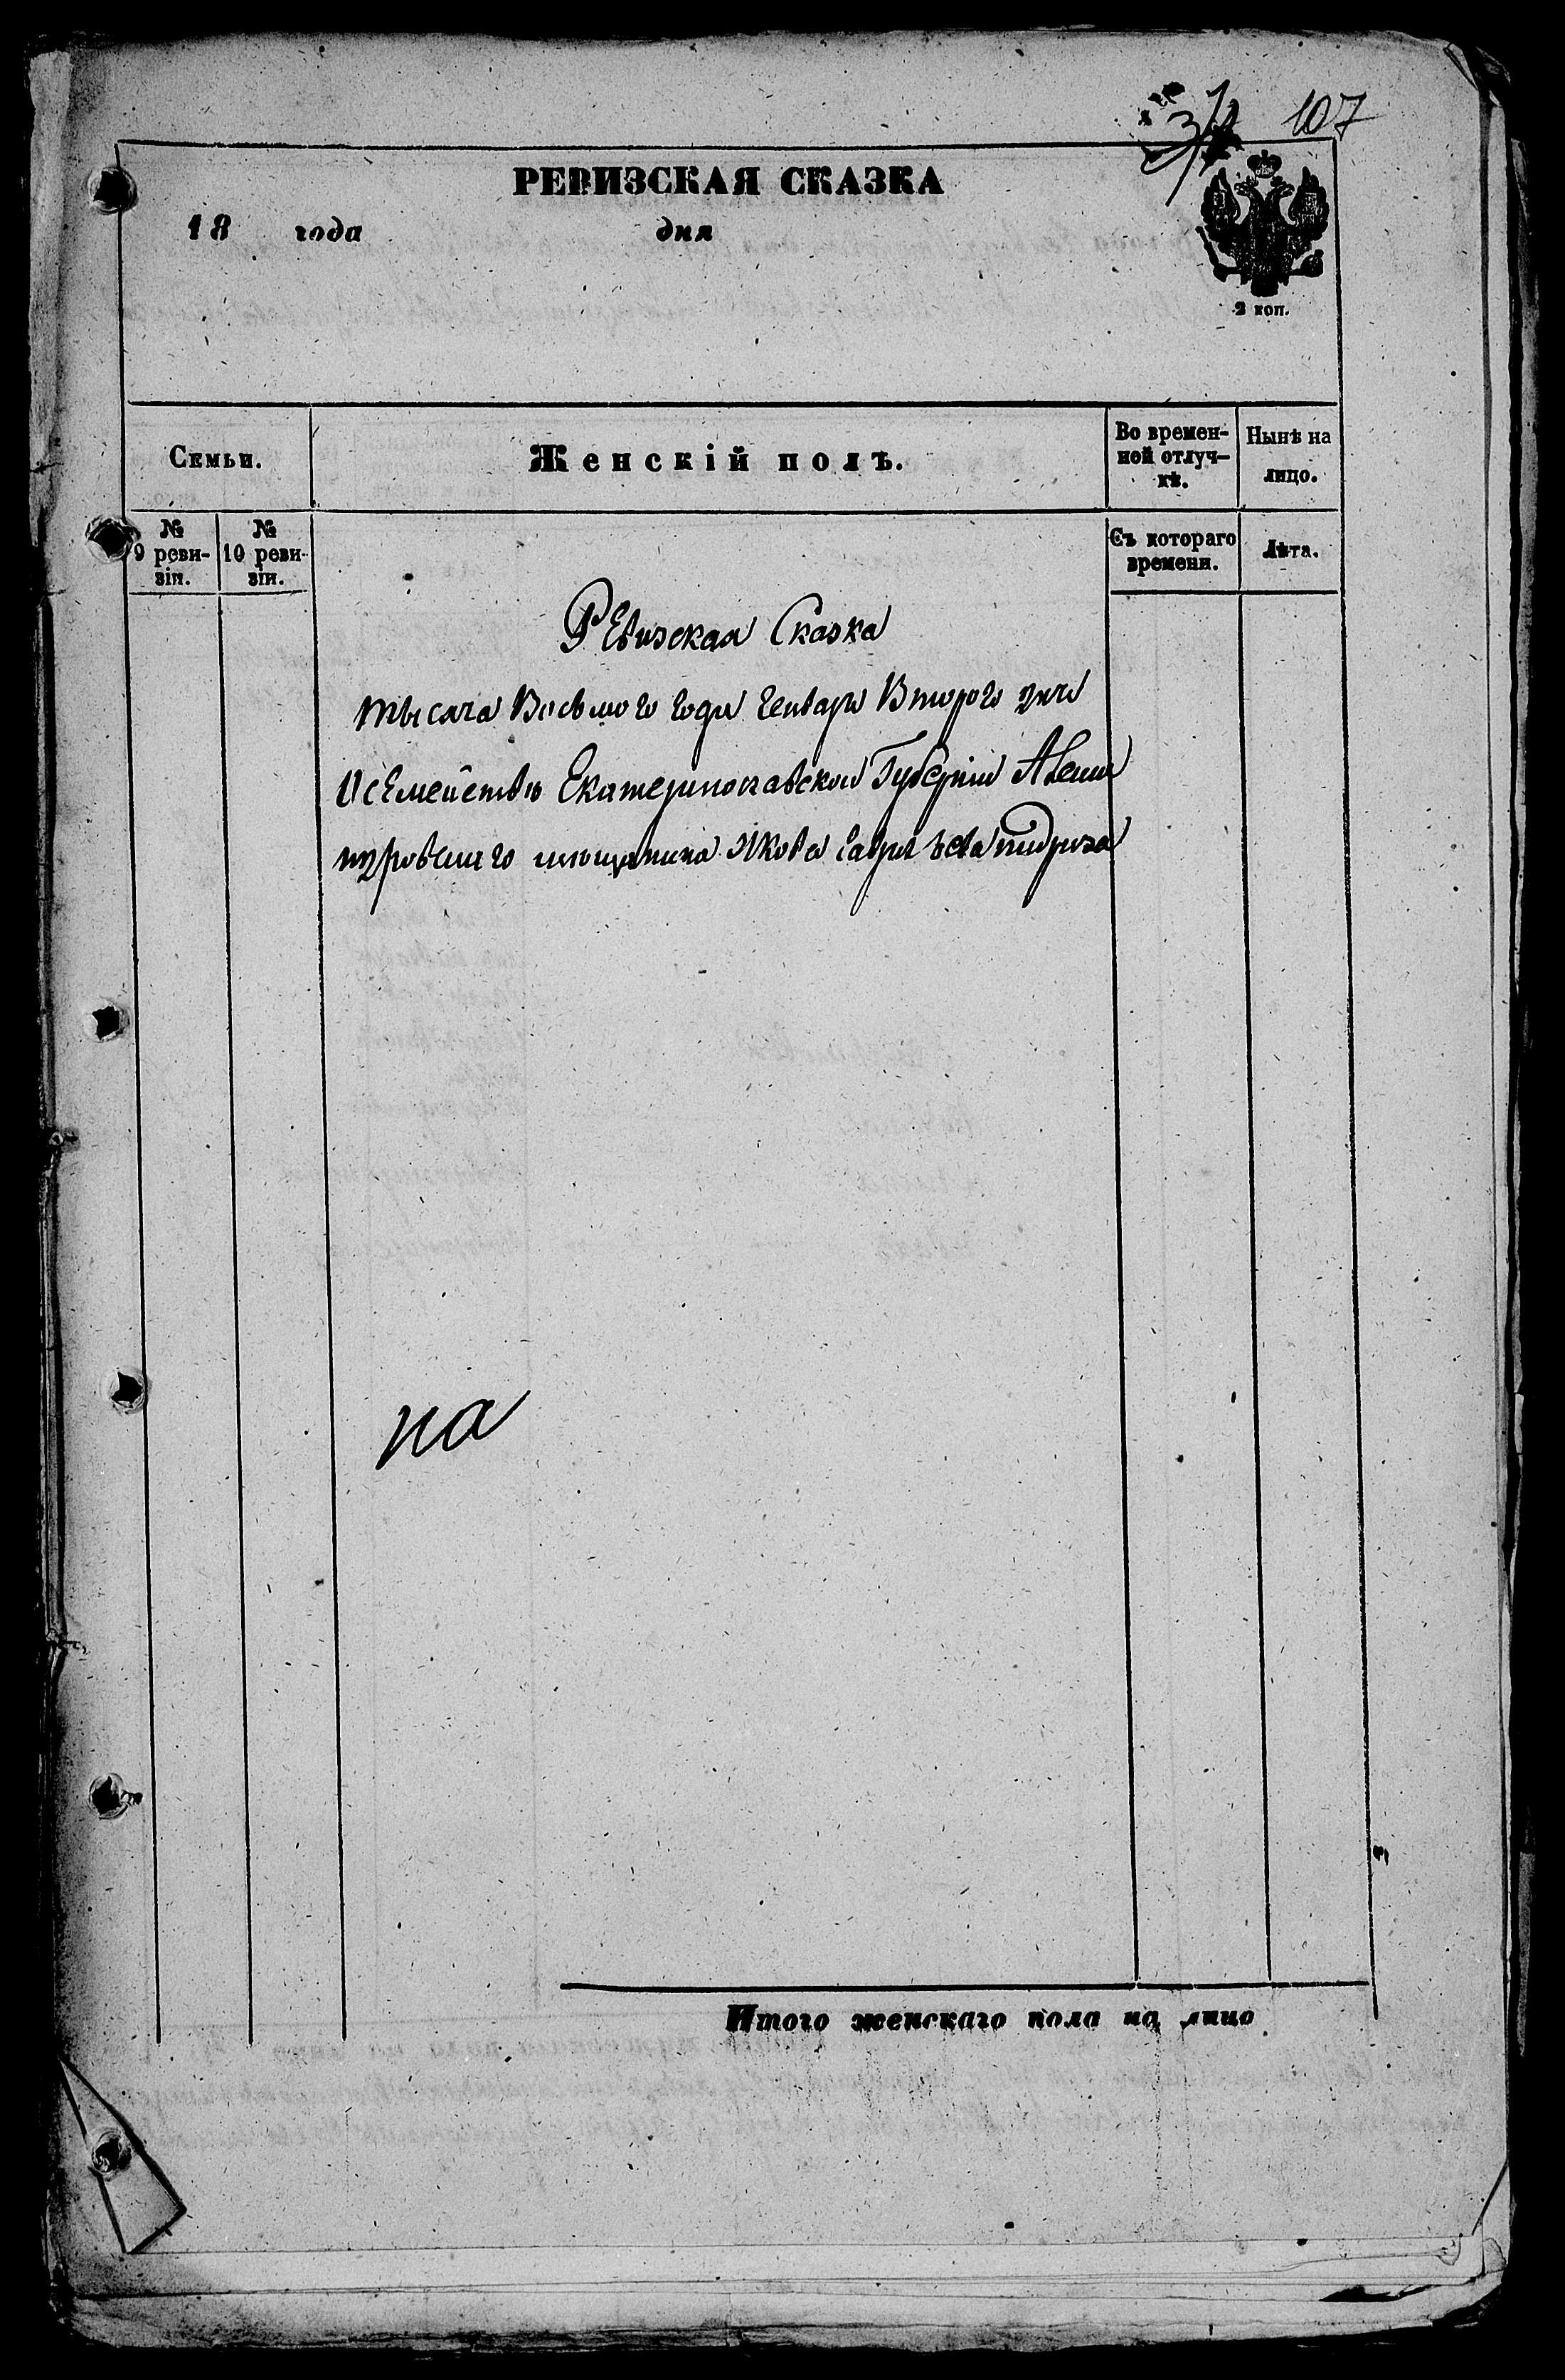 107
РЕВИЗСКАЯ СКАЗКА
18 года дня
2 коп.
Семьи.
Женскій полъ.
Во времен-
ной отлуч-
кѣ.
Нынѣ на
лицо.
№
9 реви-
зіи.
№
10 реви-
зіи.
Съ котораго
времени.
Лѣта.
Ревизская Сказка
тысяча Восьмого года Генваря Второго дня
О семействѣ Екатеринославской Губерніи
мѣщанина Якова
на
Итого женскаго пола на лицо